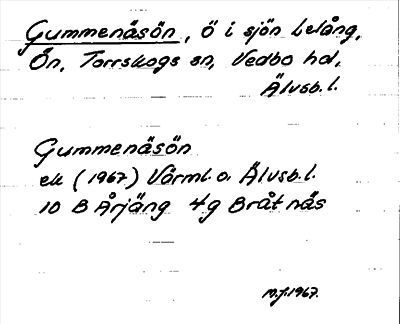 Gummenäsön, ö i sjön Lelång,
Ön, Torrskogs sn, Vedbo hd,
Älvsb. l.
Gummenäsön
ek (1967) Värml. o. Älvsb. l.
10 B Årjäng 4g Bråtnäs
M.J. 1967.